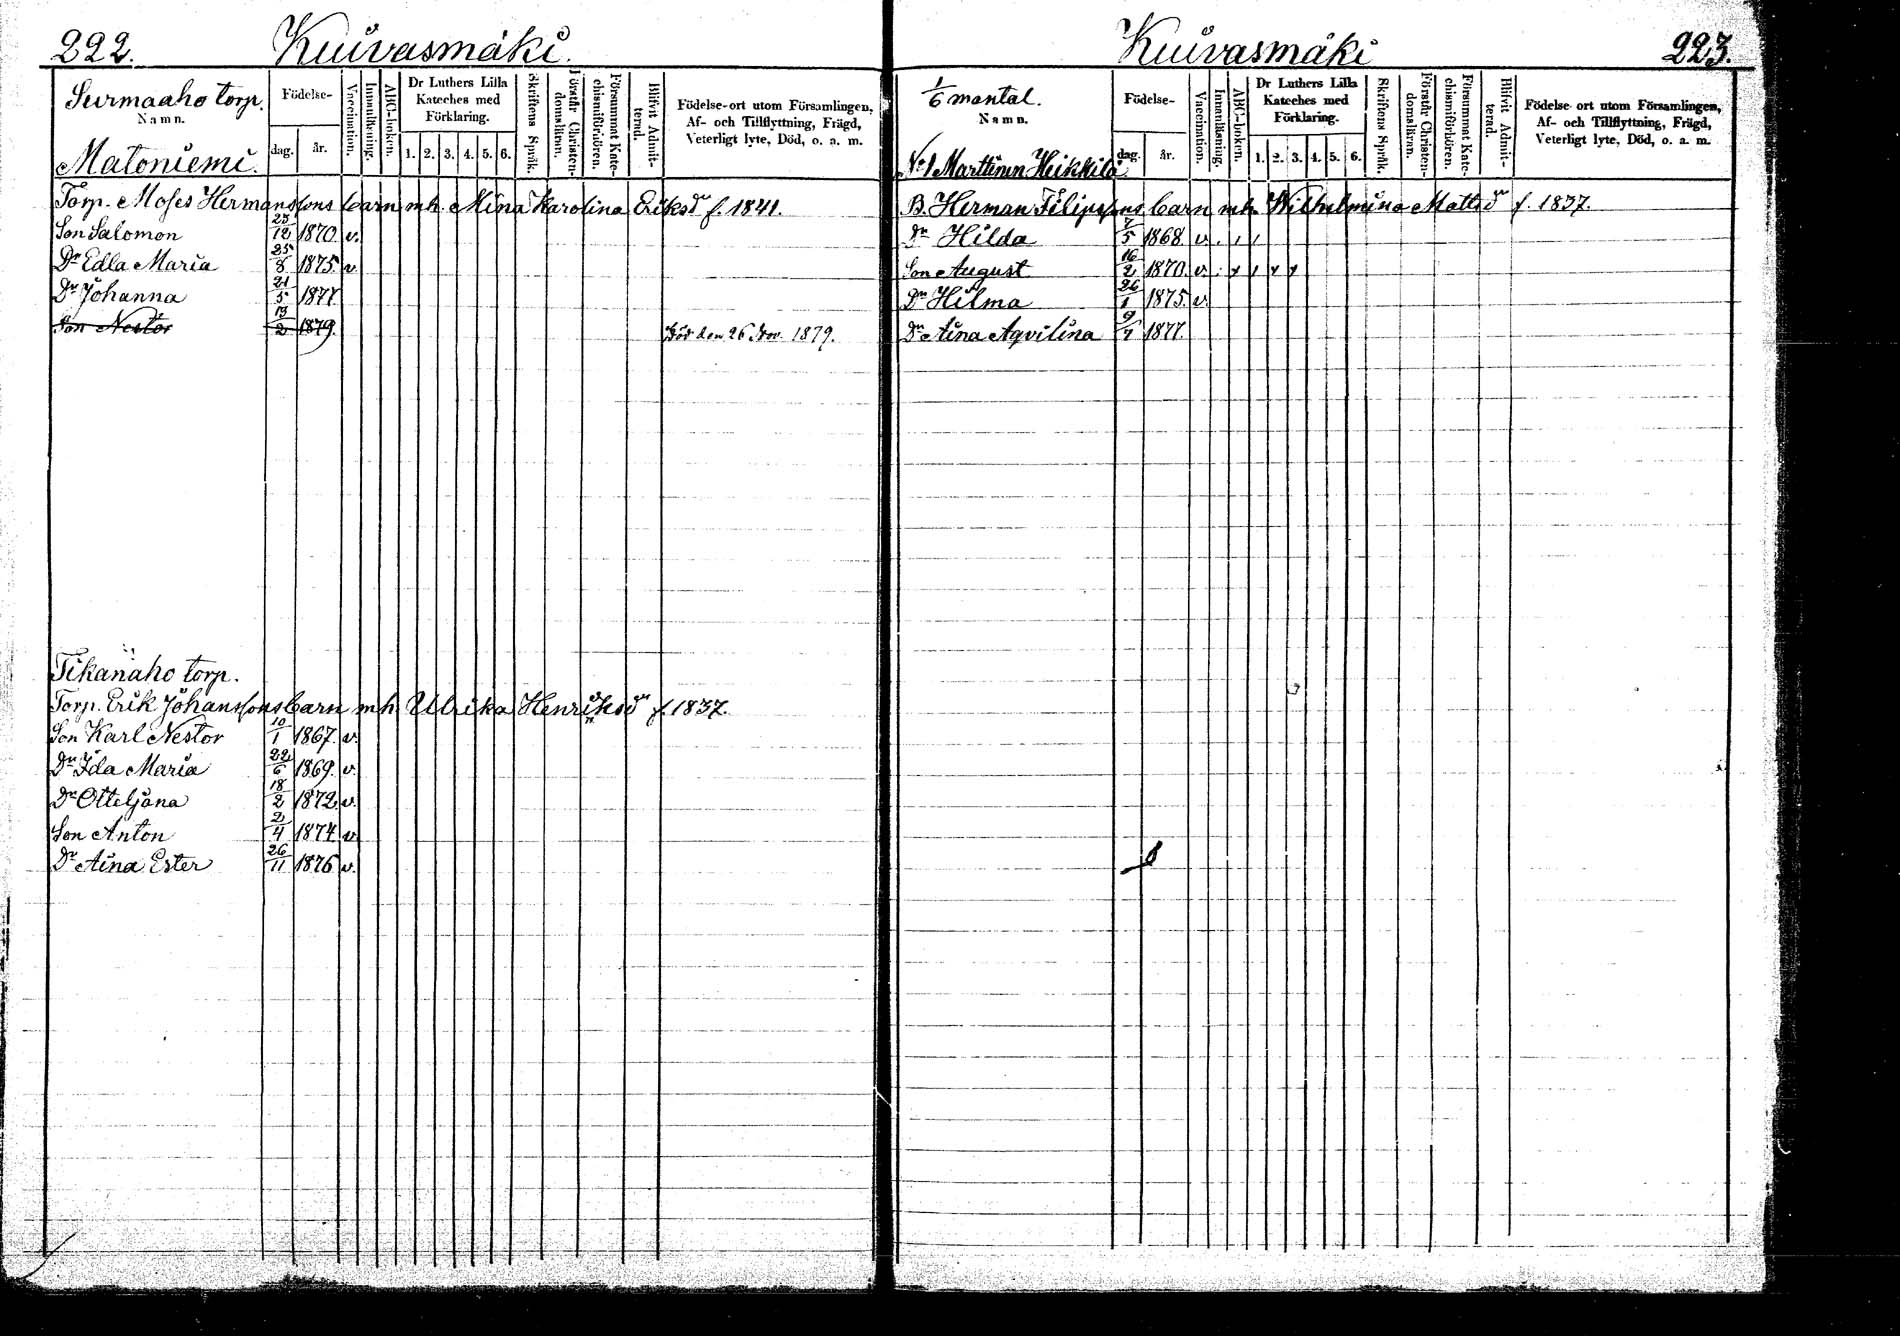 222. Kuivasmäki.
Surmaaho torp.
Namn.
Matoniemi.
Födelse-
dag. år.
Vaccination.
Innanläsning.
ABC-boken.
Dr Luthers Lilla
Kateches med
Förklaring.
1. 2. 3. 4. 5. 6.
Skriftens Språk.
Förstår Christen-
domsläran.
Försummat Kate-
chismiförhören.
Blifvit Admit-
terad.
Födelse-ort utom Församlingen,
Af- och Tillflyttning, Frägd,
Veterligt lyte, Död, o. a. m.
Torp. Moses Hermanssons barn m.h. Mina Karolina Eriksdr f. 1841.
Son Salomon 23/12 1870. v.
Dr Edla Maria 25/8 1875. v.
Dr Johanna 21/5 1877
Son Nestor 13/2 1879. Död den 26 Nov. 1879.
Tikanaho torp.
Torp. Erik Johanssons barn mh Ulrika Henriksdr f. 1837.
Son Karl Nestor 10/1 1867. v.
Dr Ida Maria 22/6 1869. v.
Dr Otteljana 18/2 1872. v.
Son Anton 2/4 1874 v.
Dr Aina Ester 26/11 1876 v.
Kuivasmäki 223.
1/6 mantal.
Namn.
No 1 Marttinen Heikkilä
Födelse-
dag. år.
Vaccination.
Innanläsning.
ABC-boken.
Dr Luthers Lilla
Kateches med
Förklaring.
1. 2. 3. 4. 5. 6.
Skriftens Språk.
Förstår Christen-
domsläran.
Försummat Kate-
chismiförhören.
Blifvit Admit-
terad.
Födelse-ort utom Församlingen,
Af- och Tillflyttning, Frägd,
Veterligt lyte, Död, o. a. m.
B. Herman Filipssons barn mh. Wilhelmina Mattsdr f. 1837.
Dr Hilda 7/5 1868 v.
Son August 16/2 1870. v.
Dr Hilma 26/1 1875. v.
Dr Aina Aqvilina 9/7 1877.